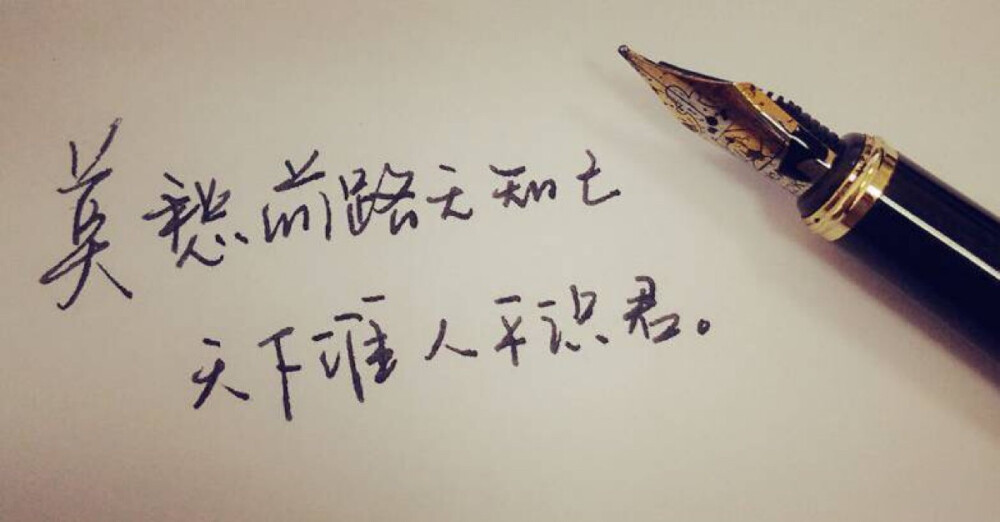 莫愁前路无知己
天下谁人不识君。